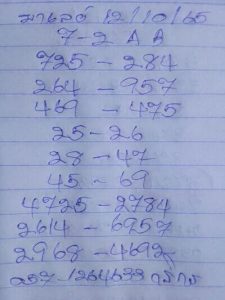 มาเลย์ 12/10/65
7-2 A B
725-284
264-957
469-475
25-26
28-47
45-69
4725-2784
2614-6957
2968-4692
257-1264639